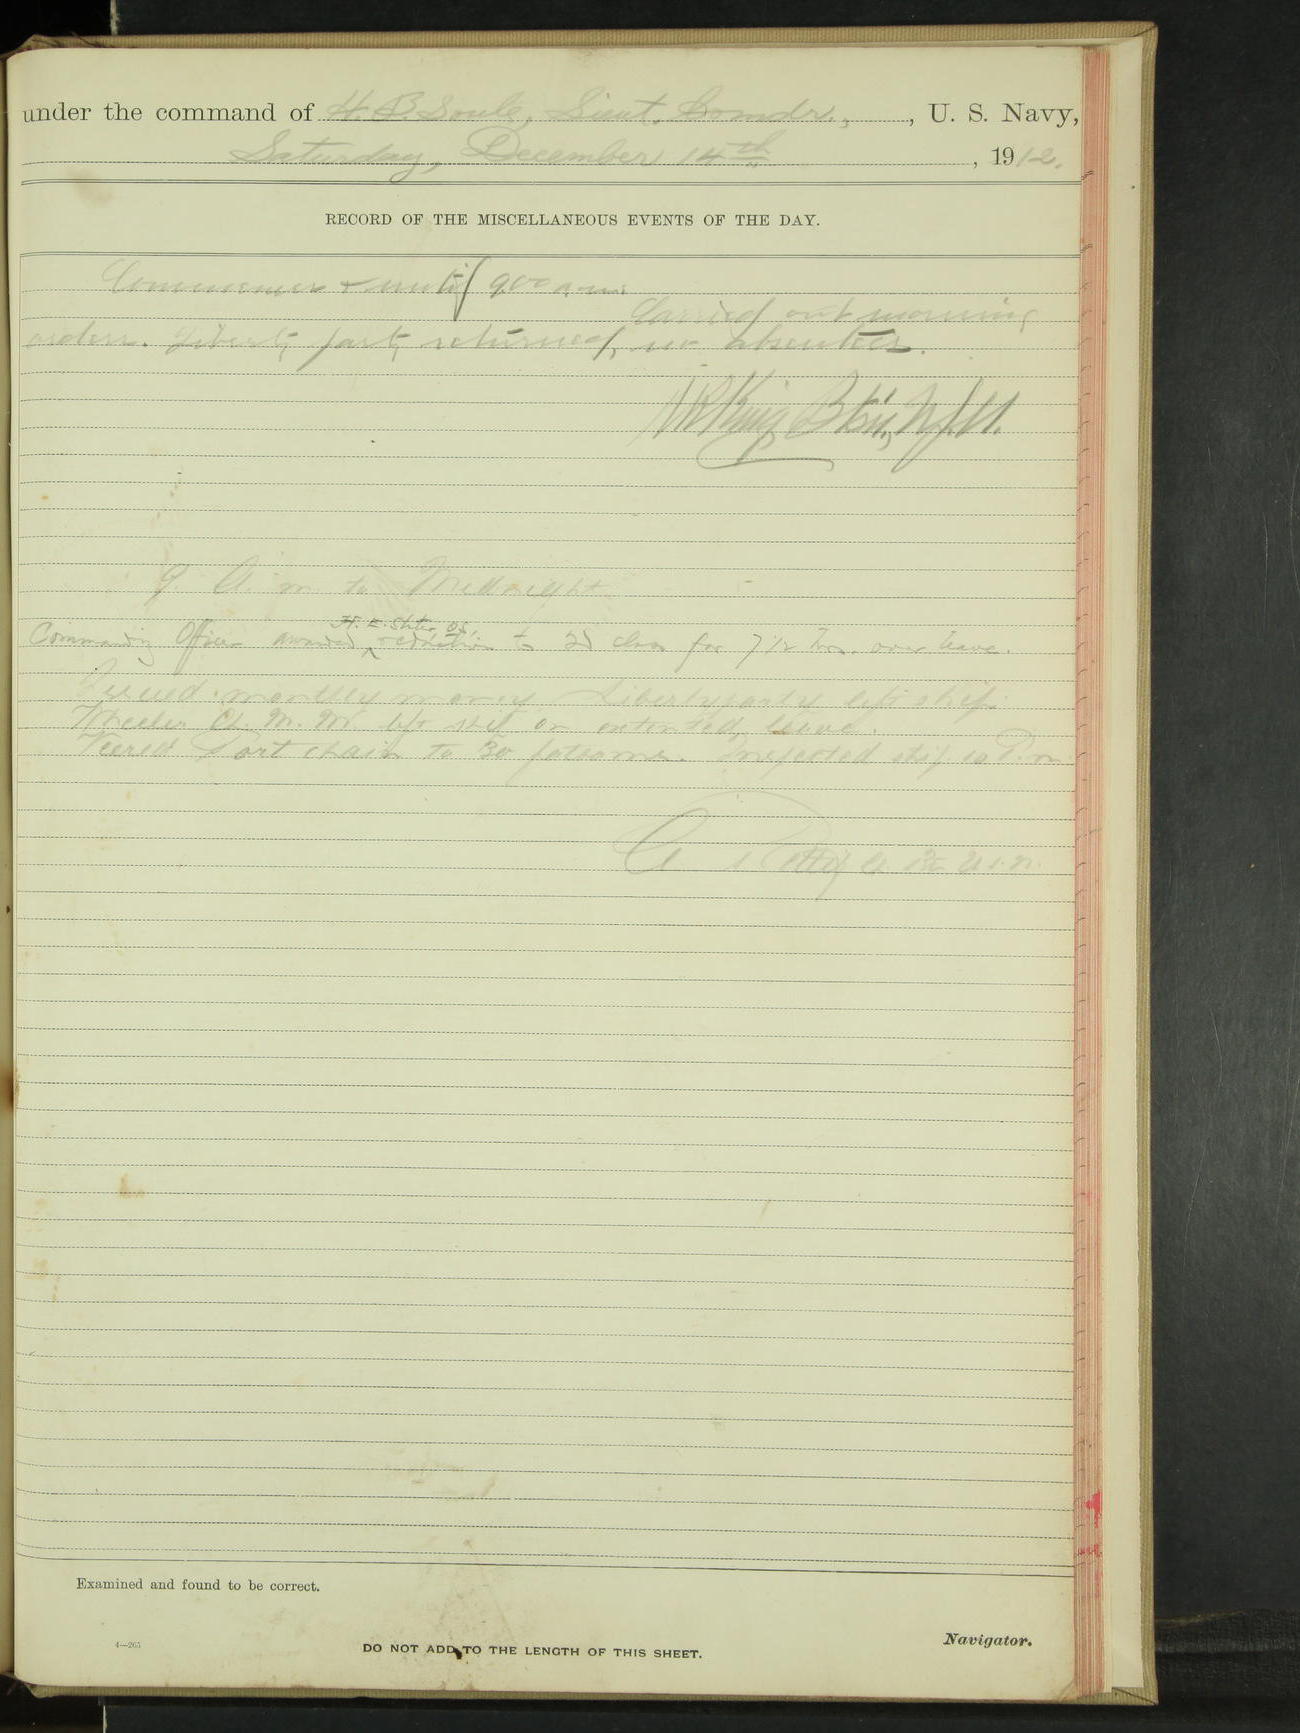 under the command of H. B. Soule, Lieut. Comdr., , U. S. Navy,
Saturday, December 14th , 1912.
RECORD OF THE MISCELLANEOUS EVENTS OF THE DAY.
Commences & until 9.00 a.m.
Carried out morning
orders. Liberty party returned, no absentees.
King Btsn, U.S.N.
9. A. m. to Midnight
Commanding Officer awarded reduction to 2d class for 7 1/2 hrs. over leave.
Issued monthly money. Liberty party left ship.
Wheeler Ch. M. M. left ship on extended leave.
Veered Port chain to 30 fathoms. Inspected ship 10 P. m.
U.S.N.
Examined and found to be correct.
Navigator.
4—265
DO NOT ADD TO THE LENGTH OF THIS SHEET.